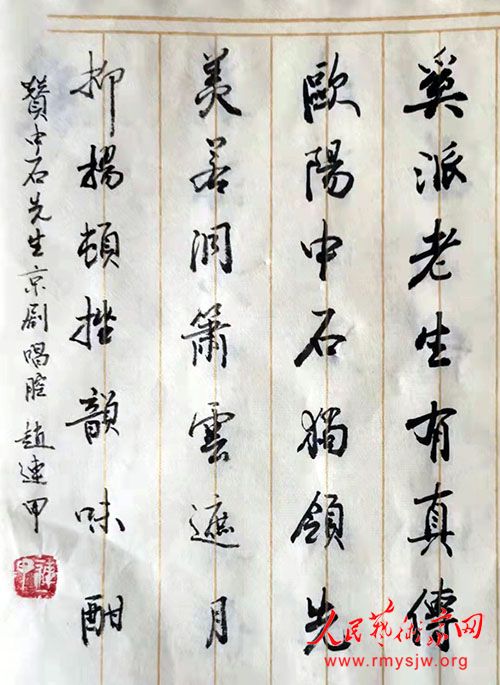 奚派老生有真傳
歐陽中石獨領先
美若洞簫雲遮月
抑揚頓挫韻味酣
贊中石先生京剧唱腔 趙连甲
人民艺术家网
www.rmysjw.org